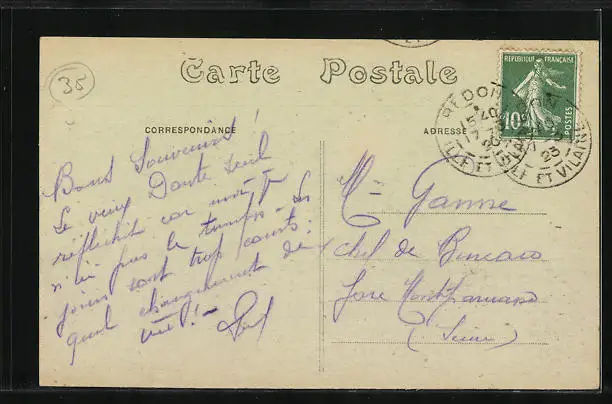 35
Carte Postale
CORRESPONDANCE
ADRESSE
RÉPUBLIQUE FRANÇAISE
10c
POSTES
REDON
ILLE ET VILAINE
23
Bons Souvenirs!
Le vieux Dante seul
réfléchit car moi je
n'ai pas le temps - Les
jours sont trop courts:
quel changement de
vie! -
Mr Ganne
Chef de Bureau
Gare Montparnasse
(Seine)